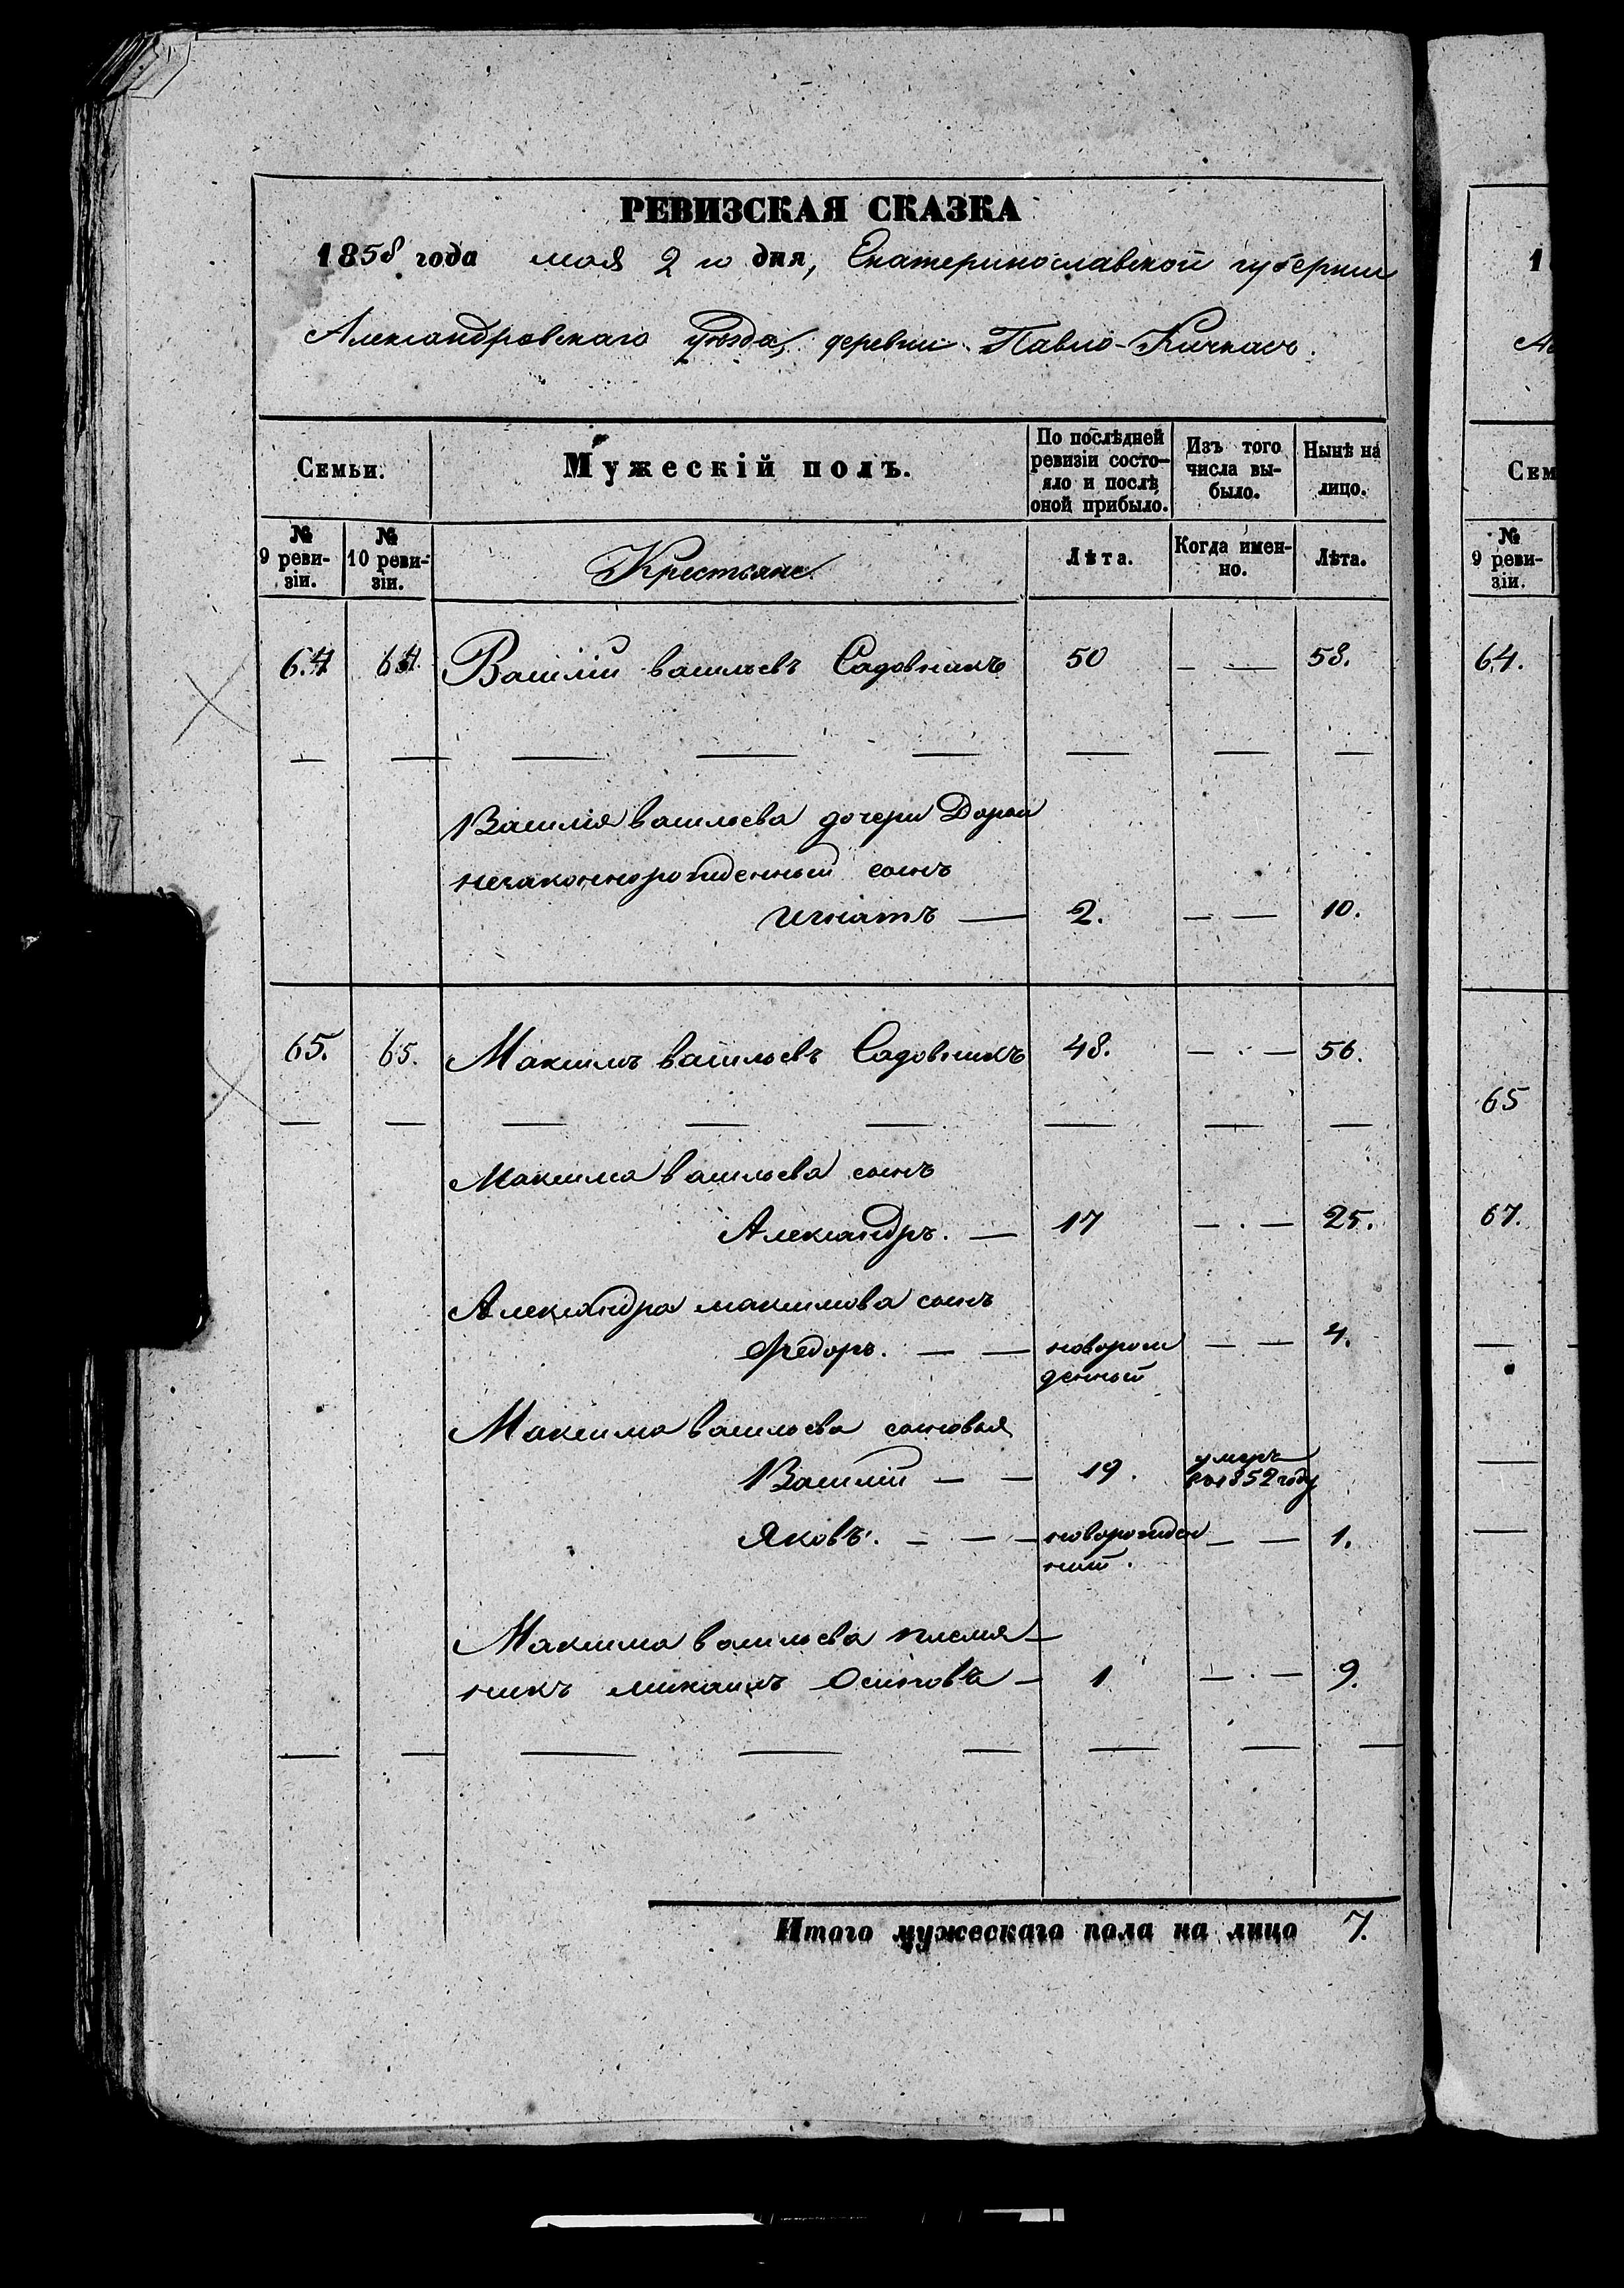 РЕВИЗСКАЯ СКАЗКА
1858 года мая 2 го дня, Екатеринославской губернии
Александровскаго уѣзда, деревни Павло-Кичкасъ.
Семьи.
Мужескій полъ.
По послѣдней
ревизіи состо-
яло и послѣ
оной прибыло.
Изъ того
числа вы-
было.
Нынѣ на
лицо.
№
9 реви-
зіи.
№
10 реви-
зіи.
Крестьяне
Лѣта.
Когда имен-
но.
Лѣта.
64 64 Василій васильевъ Садовникъ 50 — — 58.
Василія васильева дочери Дарьи
незаконнорожденный сынъ
игнатъ — 2. — — 10.
65. 65. Максимъ васильевъ Садовникъ 48. — — 56.
Максима васильева сынъ
Александръ. — 17 — — 25.
Александра максимова сынъ
Федоръ. — — новорож
денный — — 4.
Максима васильева сыновья
Василій — — 19. умеръ
въ 1852 году
Яковъ. — — — новорожден
ний. — — 1.
Максима васильева племя-
никъ михаилъ Осиповъ — 1 — — 9.
Итого мужескаго пола на лицо 7.
1
Ал
Сем
№
9 реви-
зіи.
64.
65
67.